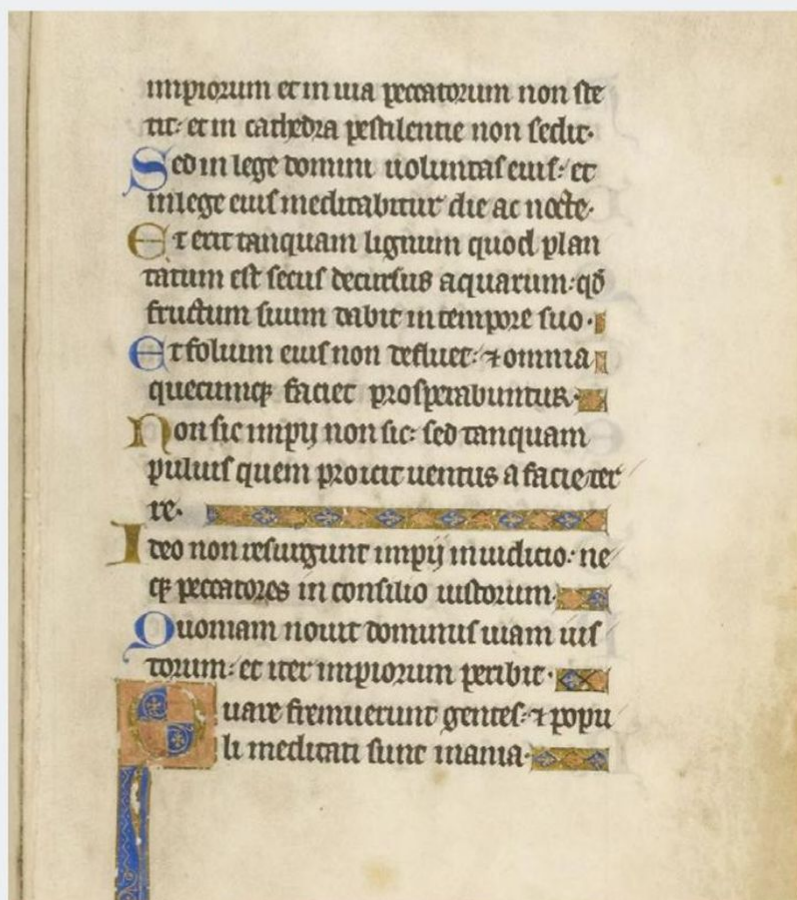 impiorum et in uia peccatorum non ste
tit: et in cathedra pestilentie non sedit.
Sed in lege domini uoluntas eius: et
in lege eius meditabitur die ac nocte.
Et erit tanquam lignum quod plan
tatum est secus decursus aquarum: qđ
fructum suum dabit in tempore suo.
Et folium eius non defluet: ⁊ omnia
quecumqꝫ faciet prosperabuntur.
Non sic impij non sic: sed tanquam
puluis quem proicit uentus a facie ter
re.
Ideo non resurgunt impij in iudicio: ne
qꝫ peccatores in consilio iustorum.
Quoniam nouit dominus uiam ius
torum: et iter impiorum peribit.
Quare fremuerunt gentes: ⁊ popu
li meditati sunt inania.